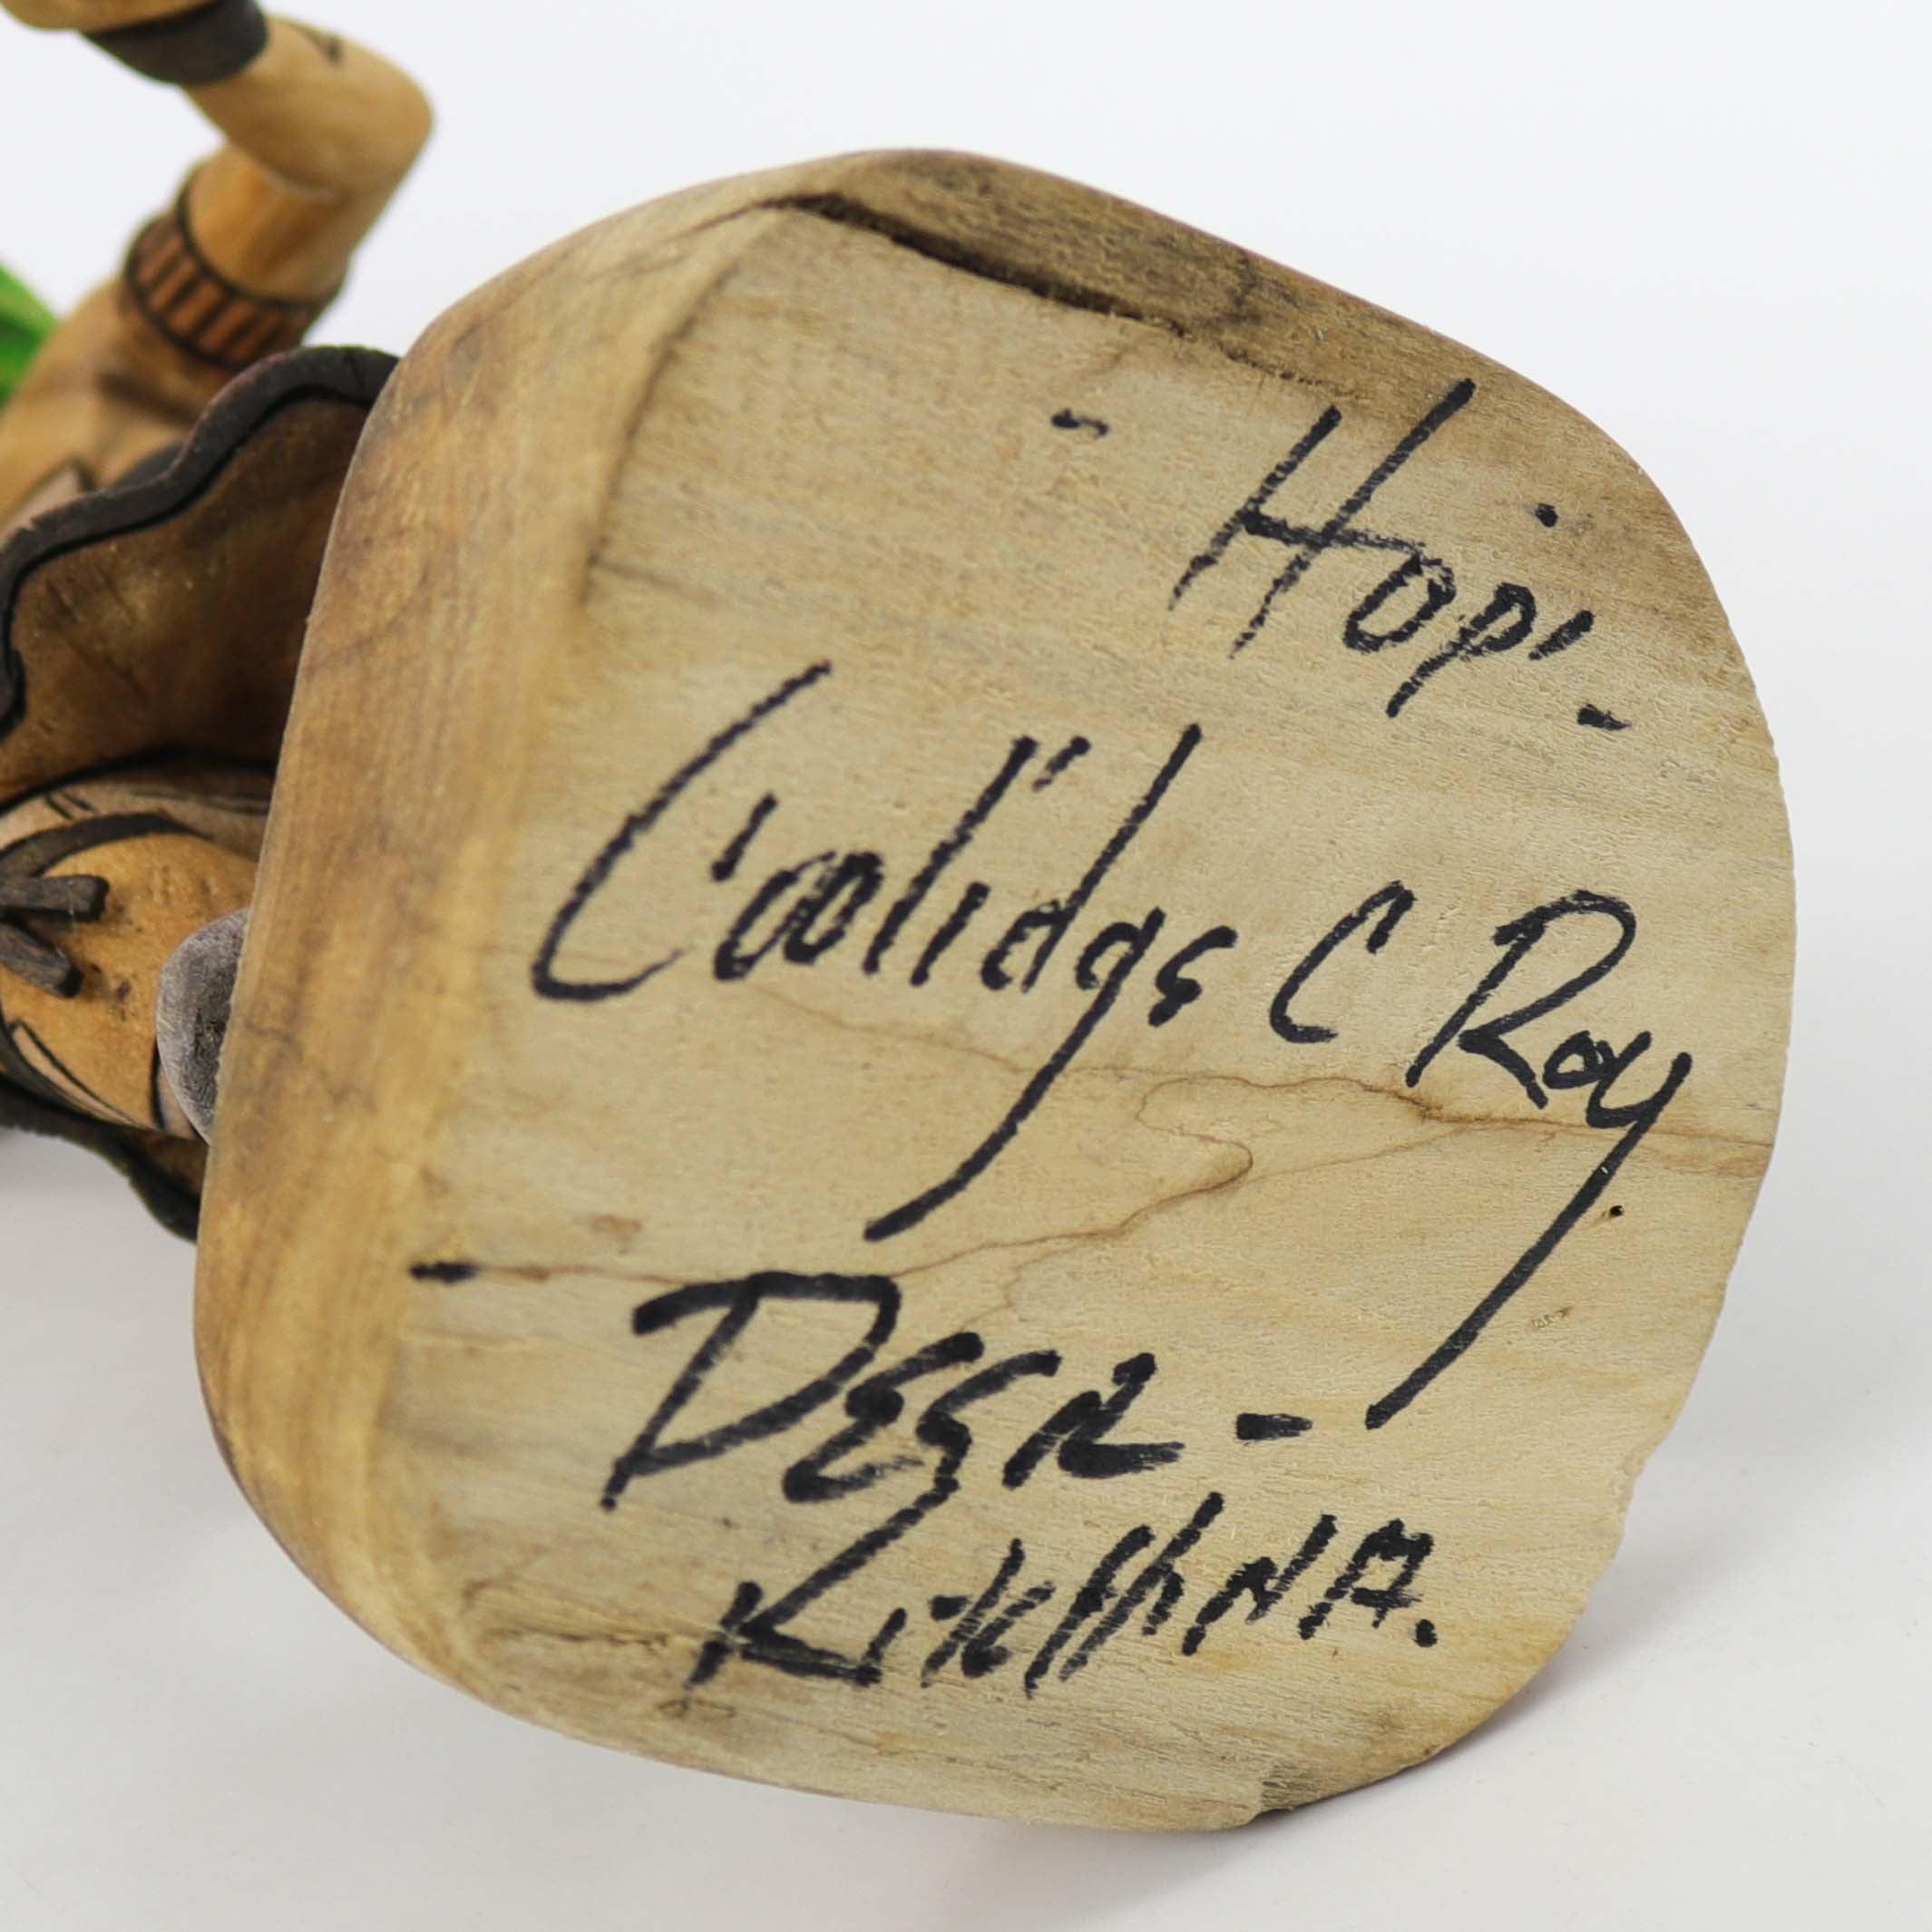 - Hopi -
Coolidge C Roy
- DEER -
KACHINA.